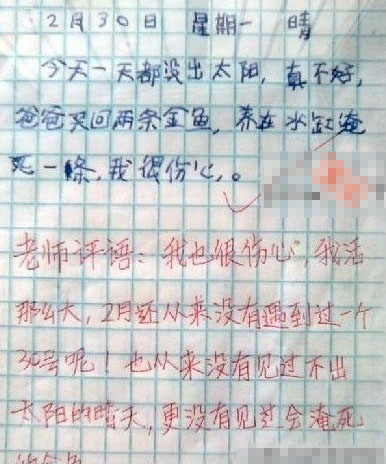 2月30日 星期一 晴
今天一天都没出太阳,真不好,
爸爸买回两条金鱼,养在水缸淹
死一條,我很伤心。
老师评语:我也很伤心,我活
那么大,2月还从来没有遇到过一个
30号呢!也从来没有见过不出
太阳的晴天,更没有见过会淹死
的金鱼